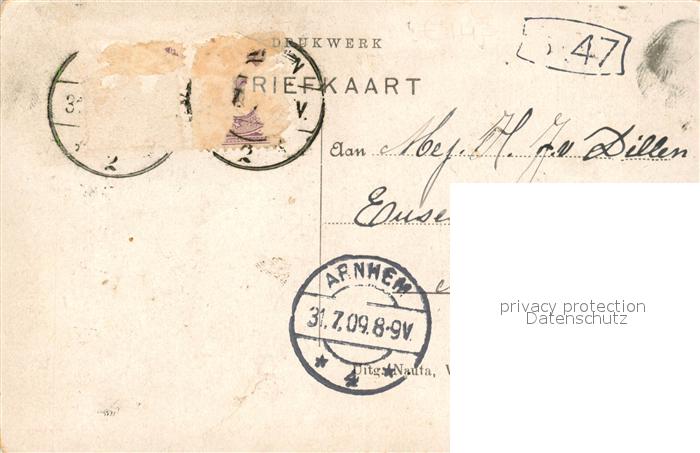 DRUKWERK
47
BRIEFKAART
Aan Mej. H. J. v Dillen
ARNHEM
31.7.09.8-9V.
* 4 *
Uitg. Nauta, V
privacy protection
Datenschutz